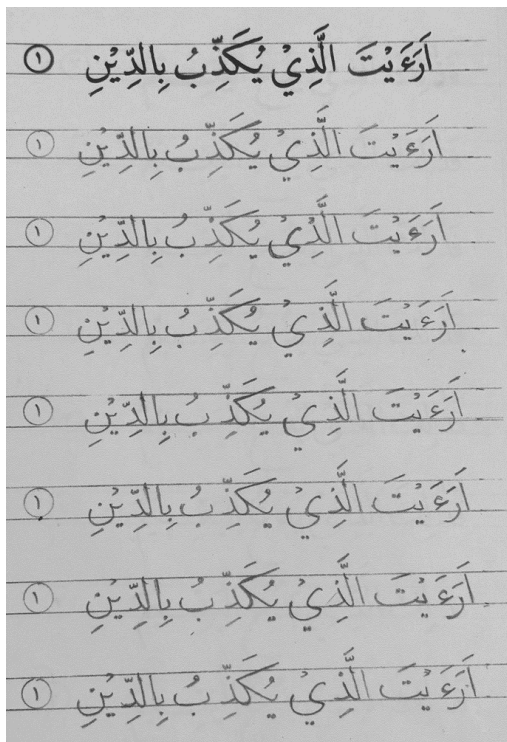 اَرَءَيْتَ الَّذِيْ يُكَذِّبُ بِالدِّيْنِ ١
اَرَءَيْتَ الَّذِيْ يُكَذِّبُ بِالدِّيْنِ ١
اَرَءَيْتَ الَّذِيْ يُكَذِّبُ بِالدِّيْنِ ١
اَرَءَيْتَ الَّذِيْ يُكَذِّبُ بِالدِّيْنِ ١
اَرَءَيْتَ الَّذِيْ يُكَذِّبُ بِالدِّيْنِ ١
اَرَءَيْتَ الَّذِيْ يُكَذِّبُ بِالدِّيْنِ ١
اَرَءَيْتَ الَّذِيْ يُكَذِّبُ بِالدِّيْنِ ١
اَرَءَيْتَ الَّذِيْ يُكَذِّبُ بِالدِّيْنِ ١